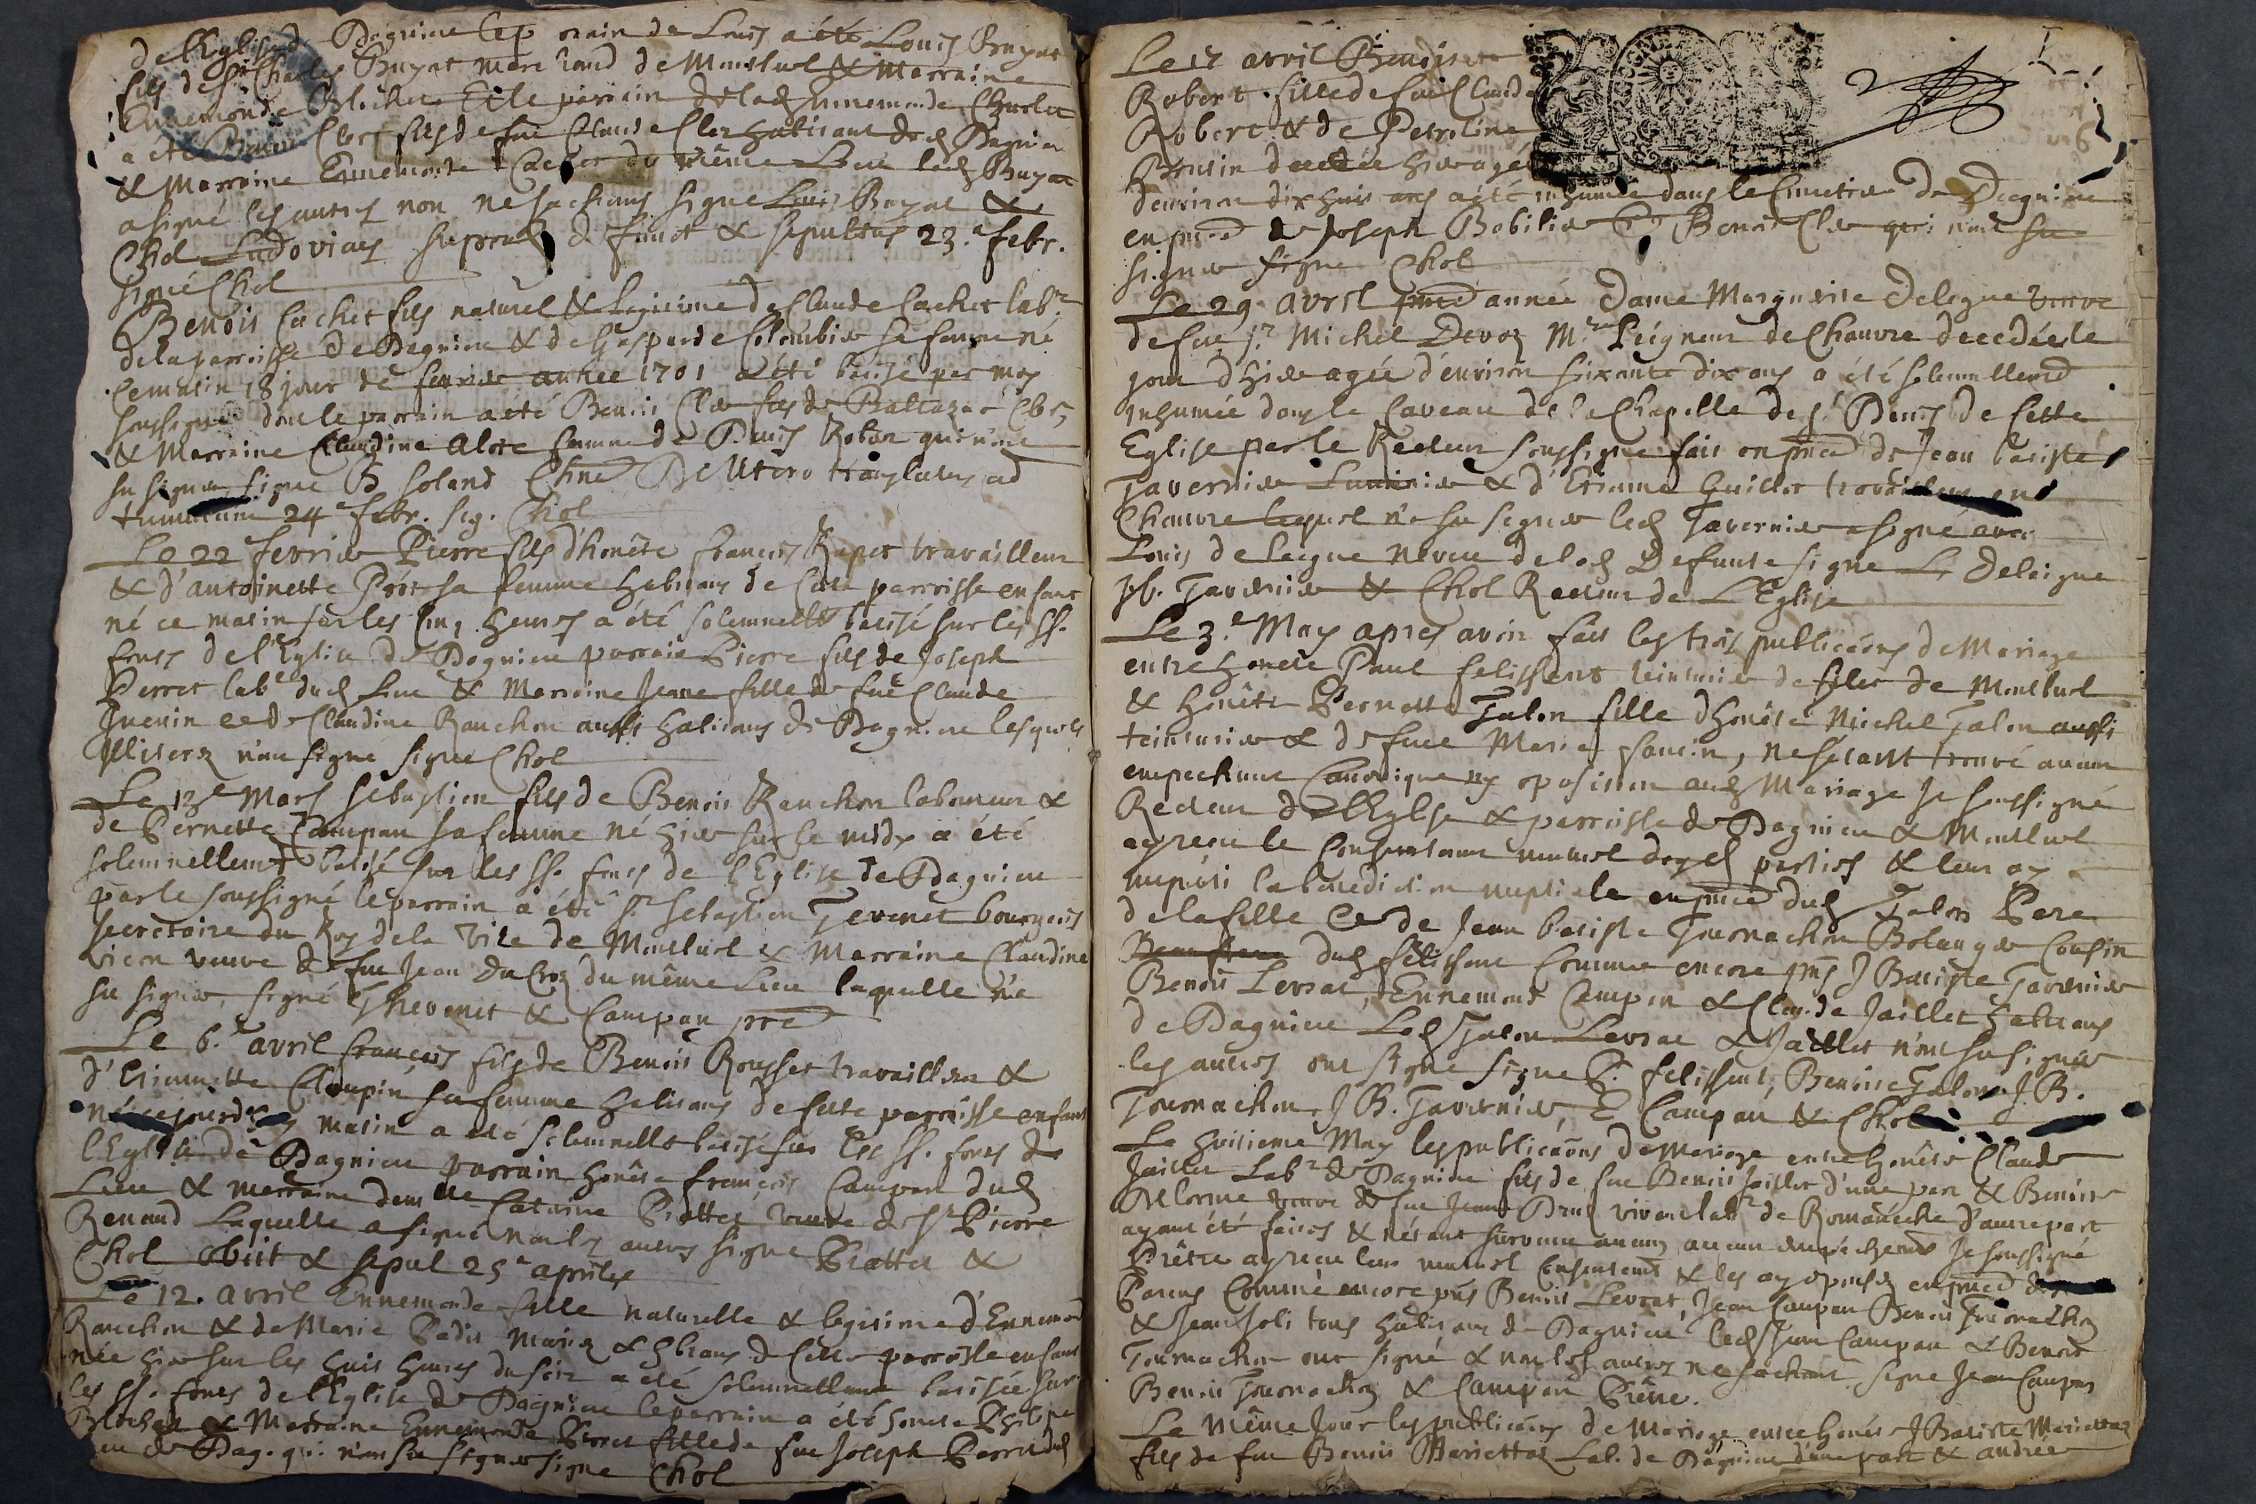 de l'Eglise de Dagnieu Le parain de Louis a été Louis Buyat
fils de Sr Charles Buyat marchand de Montluel & Marraine
Ennemonde Blochet Et le parrain de lad Ennemonde
a été Cler fils de feu Claude Cler habitant dud Dagnieu
& Marraine Ennemonde Cachet du même Lieu led Buyat
a signé les autres non ne sachans signe Louis Buyat &
Chol Ludovicus supradd defunct & sepultus 23.e febr.
signé Chol
Benoit Cachet fils naturel & legitime de Claude Cachet labr
de la parroisse de Dagnieu & de Gasparde Colombier sa femme né
ce matin 18 jour de fevrier année 1701 a été batisé par moy
soussigné dont le parrain a été Benoit Cler fils de Baltazar Cler
& Marraine Claudine Alote femme de Denis Robar qui n'ont
su signer signe B Soland De Utero translatus ad
tumulum 24e febr. sig. Chol
Le 22 fevrier Pierre fils d'honête francois Rapet travailleur
& d'antoinette Prost sa femme habitans de cette parroisse enfant
né ce matin sur les cinq heures a été solemnellt batisé sur les SS.
fonts de l'Eglise de Dagnieu parrain Pierre fils de Joseph
Perret labr dud Lieu & Marraine Jeane fille de feu Claude
Juenin et de Claudine Ranchon aussi habitans de Dagnieu lesquels
illiterez n'ont signe signe Chol
Le 13e Mars Sebastien fils de Benoit Ranchon laboureur &
de Pernette Campan sa femme né hier sur le midy a été
solemnellemt batisé sur les SS. fonts de l'Eglise de Dagnieu
par le soussigné le parrain a été Sr Sebastien Tevenet bourgeois
secretaire du Roy de la Vile de Montluel & Marraine Claudine
Vicon veuve de feu Jean Du Croz du même Lieu laquelle n'a
su signer, signé Thevenet & Campan pre
Le 6.e avril francois fils de Benoit Rousset travailleur &
d'Etiennette Clopin sa femme habitans de cette parroisse enfant
né ce jourdhuy matin a été solemnellt batisé sur les SS. fonts de
l'Eglise de Dagnieu parrain honête francois Campan dud
Lieu & marraine demlle Catrine Prattet veuve de Sr Pierre
Renaud Laquelle a signé non les autres signe Prattet &
Chol obiit & sepul 25a aprilis
Le 12. avril Ennemonde fille naturelle & legitime d'Ennemond
Ranchon & de Marie Padit mariez & hbtans de cette parroisse enfant
née hier sur les huit heures du soir a été solemnellemt batisée sur
les SS. fonts de l'Eglise de Dagnieu le parrain a été honete Philipe
Blochet & Marraine Ennemonde Perret fille de feu Joseph Perret dud
lieu de Dag. qui n'ont su signer signe Chol
Le 17 avril Benoiste
Robert fille de feu Claude
Robert & de Petroline
Bonsin decedée hier agée
d'environ dix huit ans a été inhumée dans le Cimetiere de Dagnieu
en pnce de Joseph Bobilier Et Benoit Cler qui n'ont su
signer signe Chol
Le 29. avril pnte année Dame Marguerite Delegue veuve
de feu Sr Michel Devoz Mre Peigneur de Chanvre decedée le
jour d'hier agée d'environ soixante dix ans a été solemnellemt
inhumée dans le Caveau de la Chapelle de St Denis de cette
Eglise par le Recteur soussigné fait en pnce de Jean batiste
Tavernier & d'Etienne Guillot travailleur en
Chanvre lequel n'a su signer led Tavernier a signé avec
Louis de leigue neveu de lad Defunte signe L. Deleigue
Jb. Tavernier & Chol Recteur de L'Eglise
Le 3.e May apres avoir fait les trois publicaons de Mariage
entre honete Paul felissent teinturier de filet de Montluel
& honête Pernette Talon fille d'honête Michel Talon aussi
teinturier & de feue Marie fantin, ne s'étant trouvé aucun
empechmt Canonique ny oposition aud Mariage Je soussigné
Recteur de l'Eglise & parroisse de Dagnieu & Montluel
ay receu le consentement mutuel desd parties & leur ay
imparti la benediction nuptiale en pnce dud Talon Pere
de la fille et de Jean batiste Tournachon Bolanger Cousin
dud felissent comme encore pns J Batiste Tavernier
Benoit Levrat, Ennemond Campan & Claude Jaillet habitans
de Dagnieu Lesd Talon Levrat & Jaillet n'ont su signer
les autres ont signe signe P. felissent, Benoite Talon J. B.
Tournachon, J. B. Tavernier, E Campan & Chol
Le huitieme May les publicaons de mariage entre honête Claude
Jaillet Labr de Dagnieu fils de feu Benoit Jaillet d'une part & Benoite
Delorme veuve de feu Jean Druj vivant labr de Romaneche d'autre part
ayant été faites & n'étant survenu aucun empechemt Je soussigné
Prêtre ay receu leur mutuel consentemt & les ay epousez en pnce de
Parens Comme encore pns Benoit Levrat, Jean Campan Benoit Tournachon
& Jean Joli tous habitans de Dagnieu lesd Jean Campan & Benoit
Tournachon ont signé & non les autres ne sachant signe Jean Campan
Benoit Tournachon & Campan Prêtre.
Le même Jour les publicaons de Mariage entre honête J Batiste Mariettaz
fils de feu Benoit Mariettaz Lab. de Dagnieu d'une part & andrée